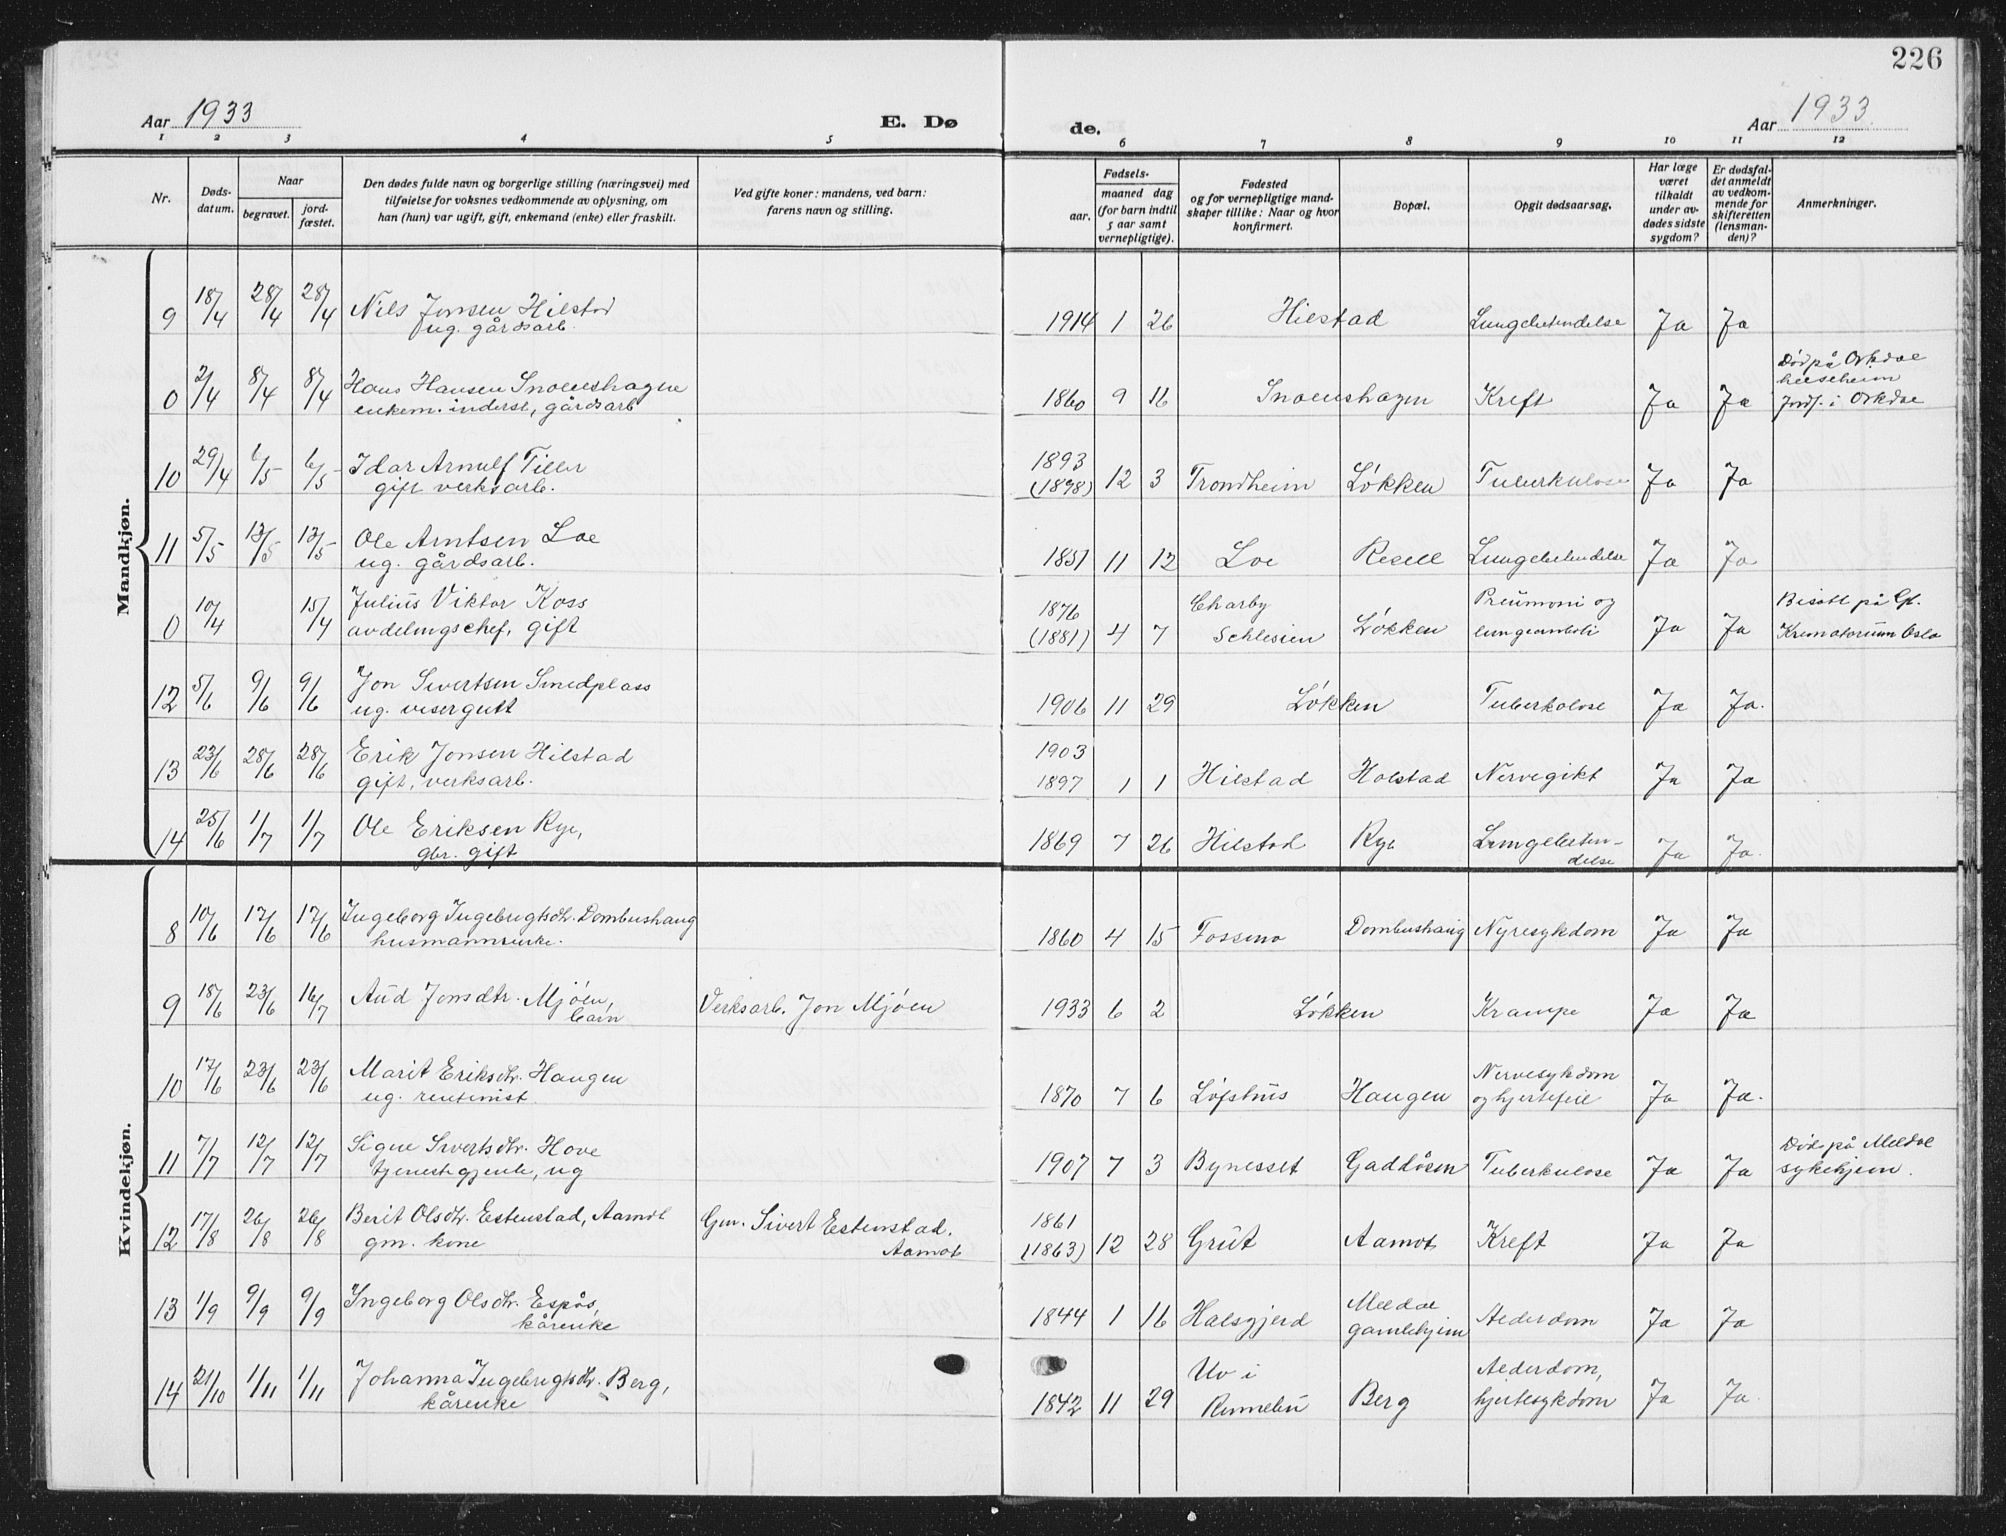 226
Aar 1933
E. Dø
de.
Aar 1933
1 2 3 4 5 6 7 8 9 10 11 12
Nr.
Døds-
datum.
Naar
begravet.
jord-
fæstet.
Den dødes fulde navn og borgerlige stilling (næringsvei) med
tilføielse for voksnes vedkommende av oplysning, om
han (hun) var ugift, gift, enkemand (enke) eller fraskilt.
Ved gifte koner: mandens, ved barn:
farens navn og stilling.
Fødsels-
aar.
maaned dag
(for barn indtil
5 aar samt
vernepligtige).
Fødested
og for vernepligtige mand-
skaper tillike: Naar og hvor
konfirmert.
Bopæl.
Opgit dødsaarsag.
Har læge
været
tilkaldt
under av-
dødes sidste
sygdom?
Er dødsfal-
det anmeldt
av vedkom-
mende for
skifteretten
(lensman-
den)?
Anmerkninger.
Mandkjøn.
9 18/4 28/4 28/4 Nils Jonsen Hilstad 1914 1 26 Hilstad Lungebetendelse Ja Ja
ug. gårdsarb.
0 2/4 8/4 8/4 Hans Hansen Snoenshagen 1860 9 16 Snoenshagen Kreft Ja Ja Død på Orkdal
enkem. inderst, gårdsarb helseheim
Jordf. i Orkdal
10 29/4 6/5 6/5 Idar Arnulf Tiller 1893 12 3 Trondheim Løkken Tuberkulose Ja Ja
gift verksarb. (1898)
11 5/5 13/5 13/5 Ole Arntsen Loe 1851 11 12 Loe Resell Lungebetendelse Ja Ja
ug. gårdsarb.
0 10/4 15/4 Julius Viktor Koss 1876 Charby Pneumoni og Bisatt på Gl.
avdelingschef, gift (1881) 4 7 Schlesien Løkken lungeemboli Ja Ja Krematorium Oslo
12 5/6 9/6 9/6 Jon Sivertsen Smedplass 1906 11 29 Løkken Tuberkulose Ja Ja.
ug. visergutt
13 23/6 28/6 28/6 Erik Jonsen Hilstad 1903
gift, verksarb. 1897 1 1 Hilstad Holstad Nervegikt Ja Ja
14 25/6 1/7 1/7 Ole Eriksen Rye, 1869 7 26 Hilstad Rye Lungebeten-
gbr. gift delse Ja Ja.
Kvindekjøn.
8 10/6 17/6 17/6 Ingeborg Ingebrigtsdtr. Dombushaug 1860 4 15 Fossmo Dombushaug Nyresykdom Ja Ja
husmannsenke.
9 18/6 23/6 16/7 Aud Jonsdtr. Mjøen, Verksarb. Jon Mjøen 1933 6 2 Løkken Krampe Ja Ja
barn
10 17/6 23/6 23/6 Marit Eriksdtr. Haugen 1870 7 6 Løfshus Haugen Nervesykdom Ja Ja.
ug. rentenist. og hjertefeil
11 7/7 12/7 12/7 Signe Sivertsdtr. Hove 1907 7 3 Bynesset Gaddåsen Tuberkulose Ja Ja Død på Meldal
tjenestgjente, ug sykehjem.
12 17/8 26/8 26/8 Berit Olsdtr. Estenstad, Aamot Gm. Sivert Estenstad. 1861
gm. kone Aamot (1863) 12 28 Grut Aamot Kreft Ja Ja
13 1/9 9/9 9/9 Ingeborg Olsdtr. Espås, 1844 1 16 Halsgjerd Meldal Alderdom Ja Ja
kårenke gamlehjem
14 21/10 1/11 1/11 Johanna Ingebrigtsdtr. Berg, 1842 11 29 Uv i Berg Alderdom, Ja Ja.
kårenke Rennebu hjertesykdom